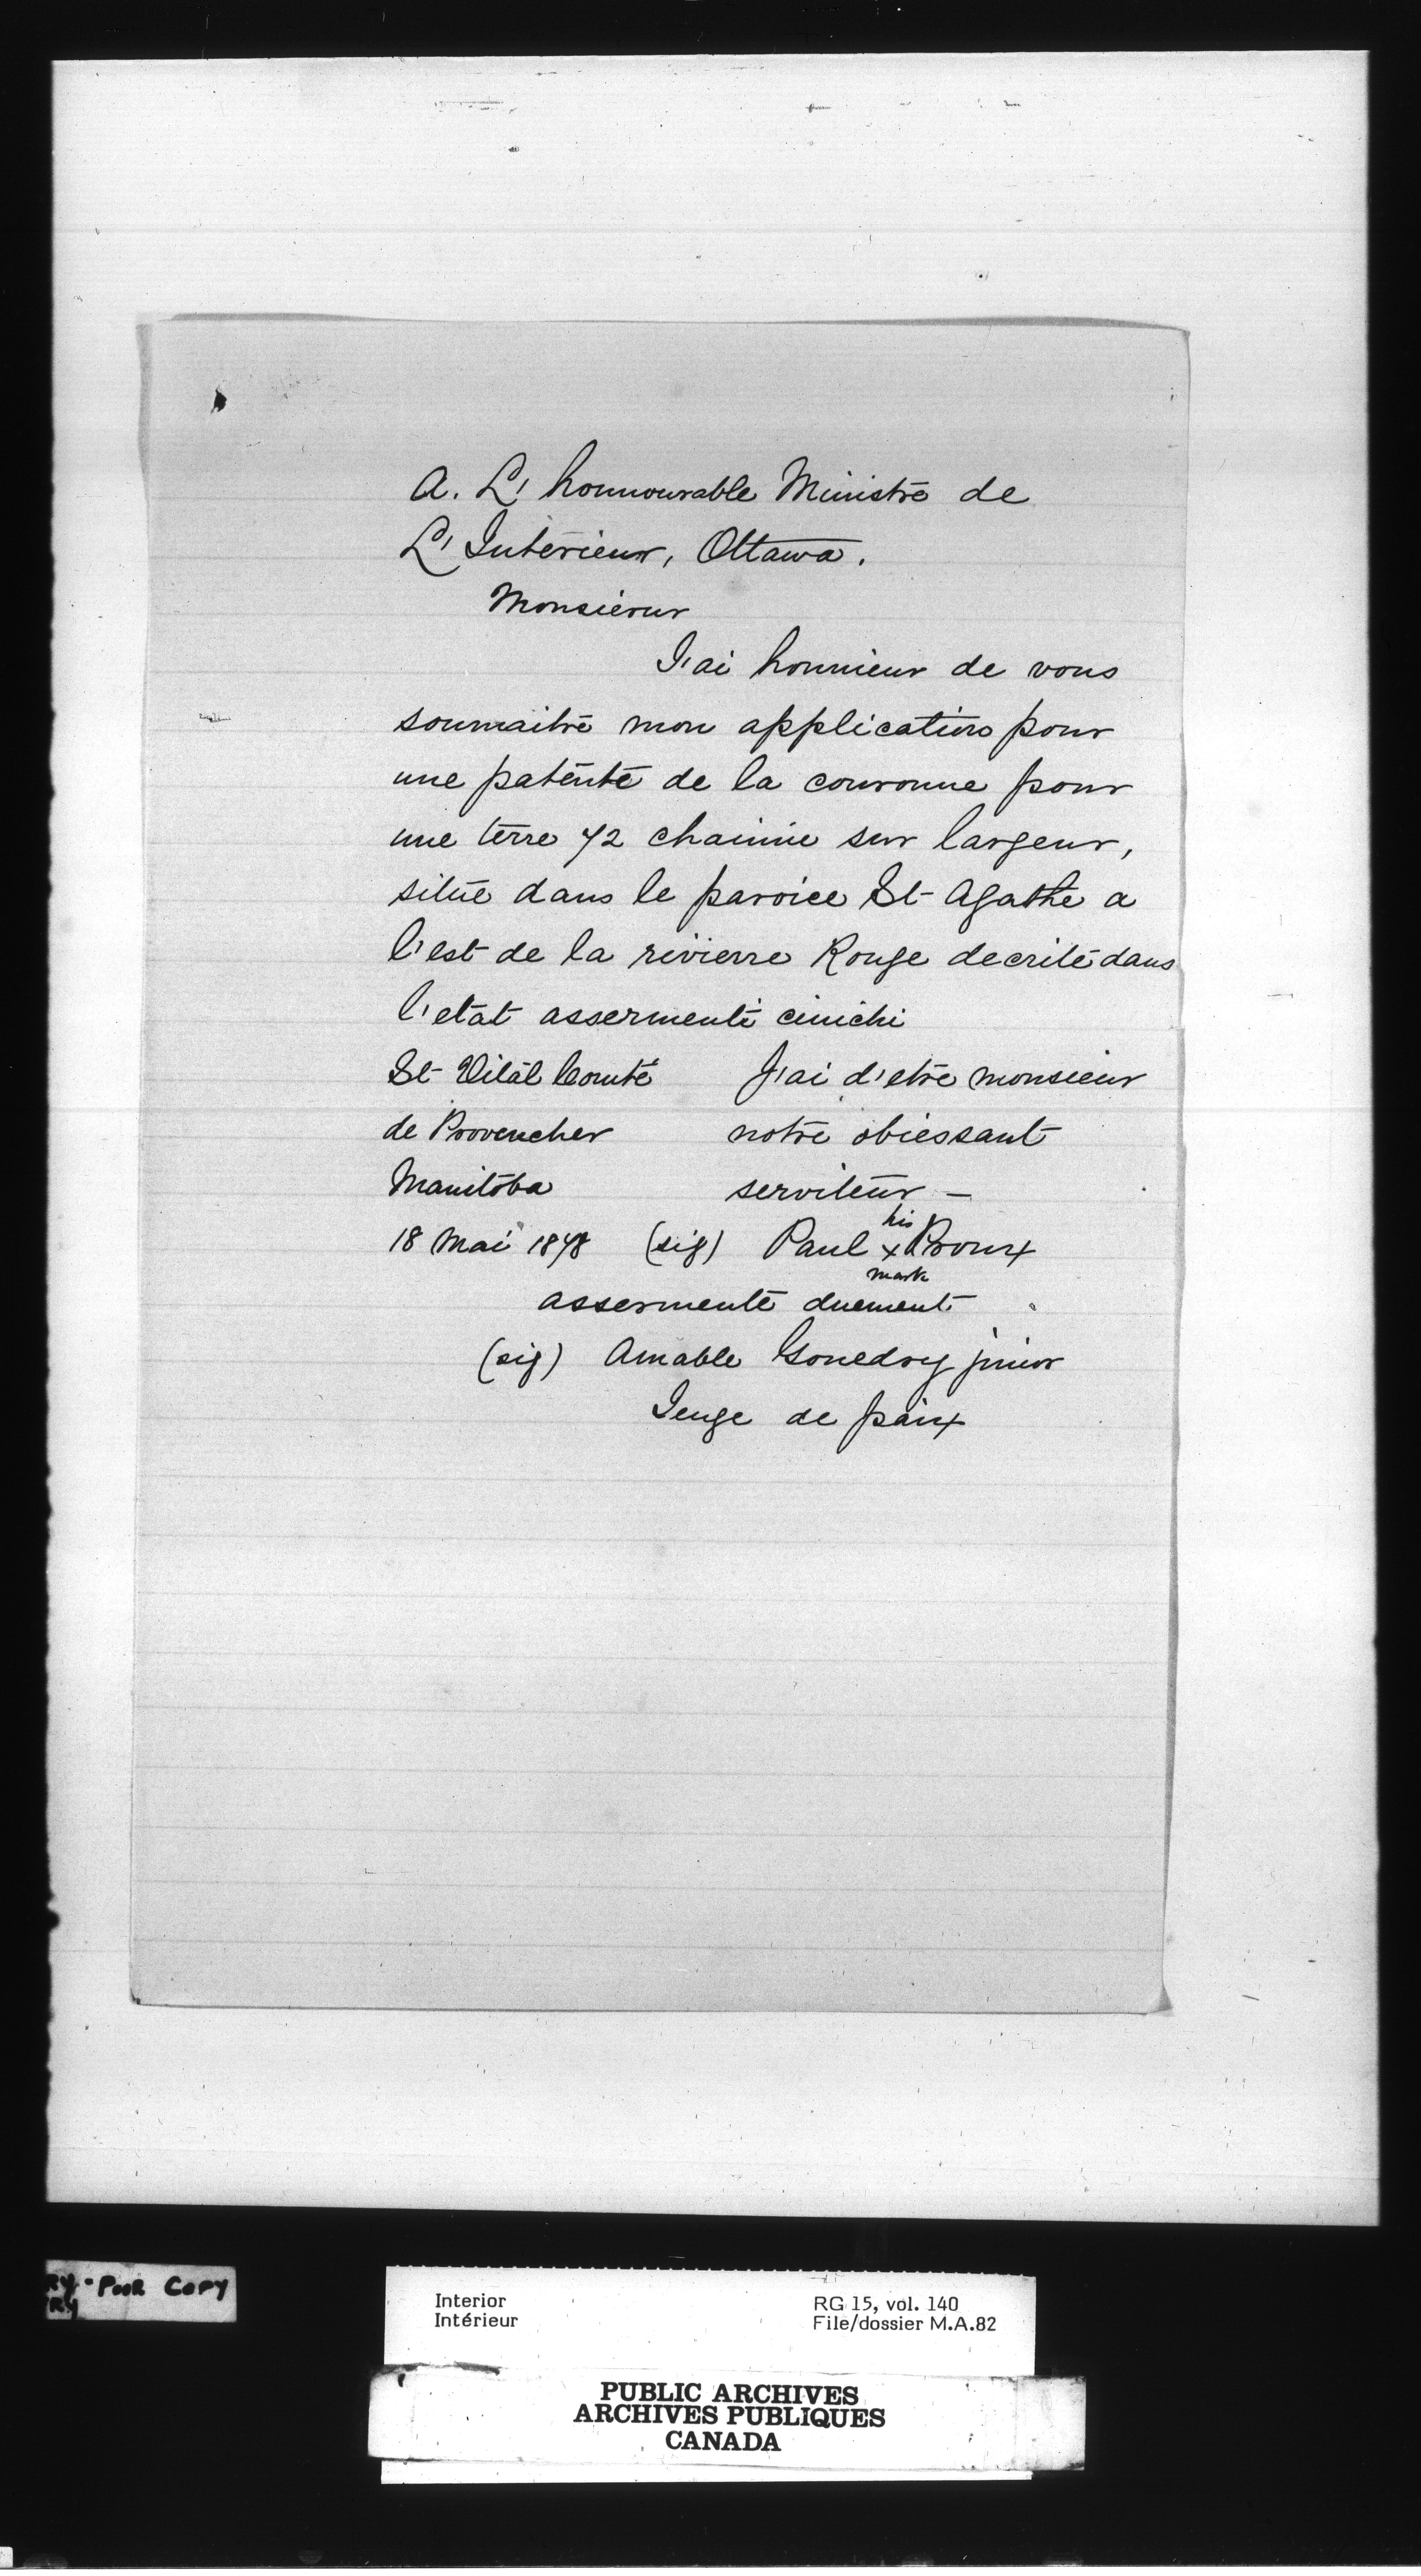 A. L' honnourable Ministre de
L' Intérieur, Ottawa.
Monsierur
J'ai honnieur de vous
soumaitre mon application pour
une patente de la couronne pour
une terre 72 chainie sur largeur,
situe dans le paroice St Agathe a
l'est de la rivierre Rouge decrite dans
l'etat assermenté cinichi
St Vital Comté J'ai d'etre monsieur
de Provencher notre obiessant
Manitoba serviteur —
18 Mai 1878 (sig) Paul x Proux
his
mark
assermenté duement
(sig) Amable junior
Jeuge de paix
RY - POOR COPY
RY
Interior RG 15, vol. 140
Intérieur File/dossier M.A.82
PUBLIC ARCHIVES
ARCHIVES PUBLIQUES
CANADA